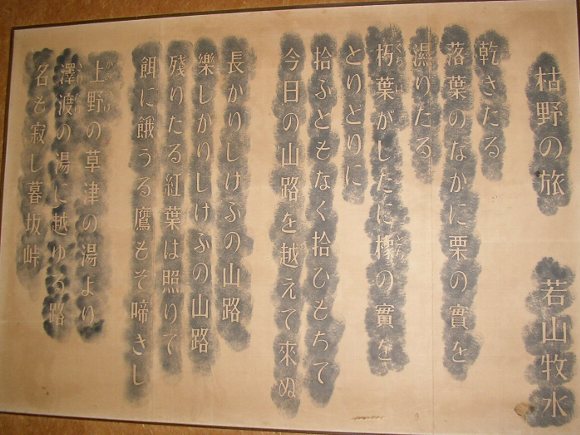 枯野の旅　若山牧水
乾きたる
落葉のなかに栗の實を
濕りたる
朽葉がしたに橡の實を
とりとりに
拾ふともなく拾ひもちて
今日の山路を越えて來ぬ
長かりしけふの山路
樂しかりしけふの山路
残りたる紅葉は照りて
餌に餓うる鷹もそ啼きし
上野の草津の湯より
澤渡の湯に越ゆる路
名も寂し暮坂峠